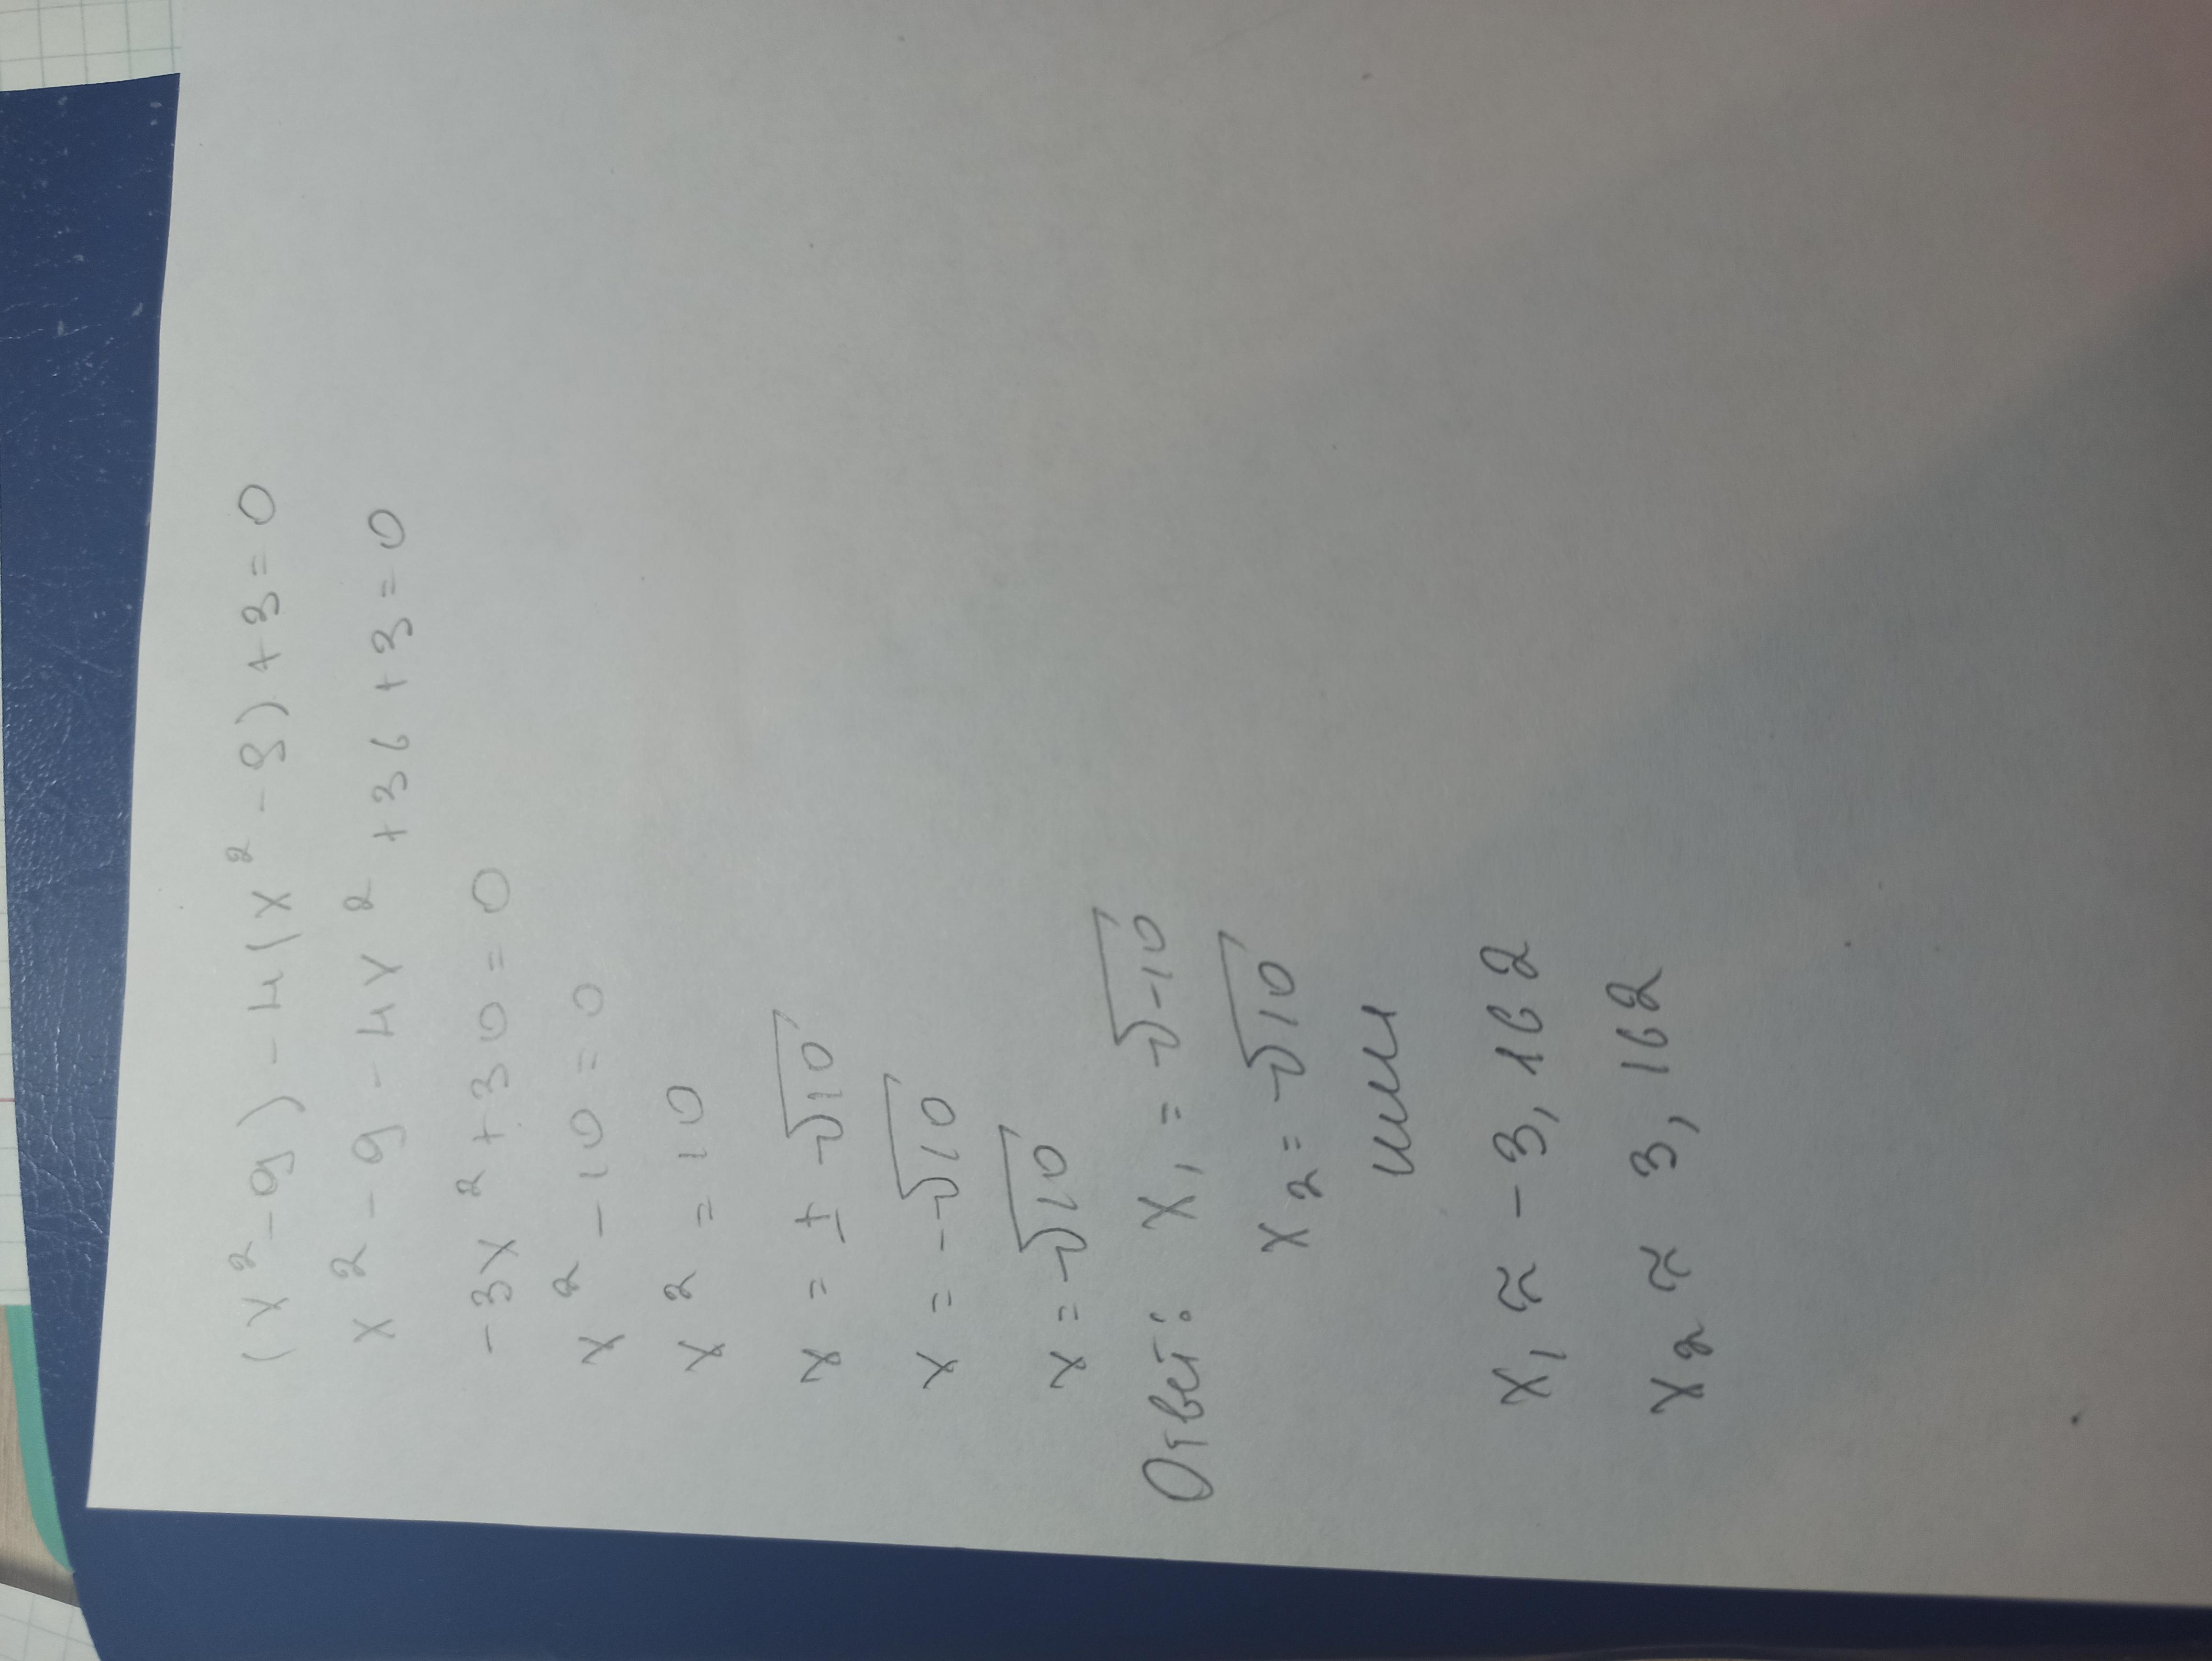 (x² - 9) - 4(x² - 9) + 3 = 0
x² - 9 - 4x² + 36 + 3 = 0
-3x² + 30 = 0
x² - 10 = 0
x² = 10
x = ± √10
x = -√10
x = √10
Ответ: x₁ = √-10
x₂ = √10
или
x₁ ≈ -3,162
x₂ ≈ 3,162